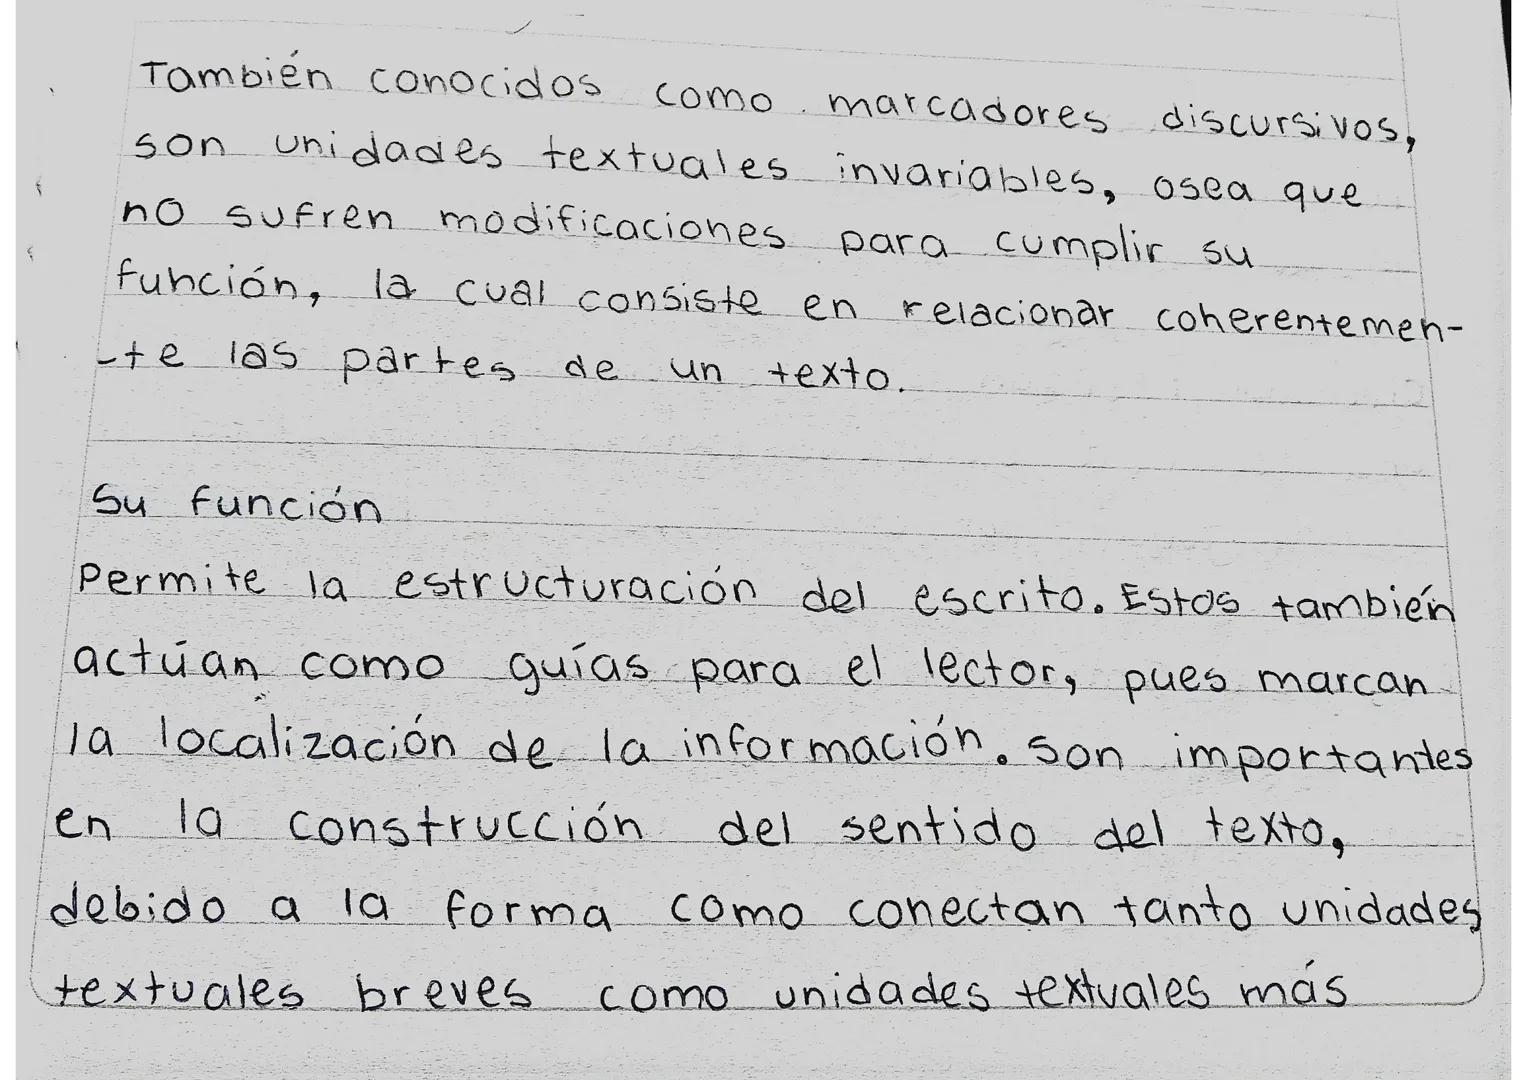 También conocidos como marcadores discursivos,
son unidades textuales invariables, osea que
no sufren modificaciones para cumplir su
función, la cual consiste en relacionar coherentemen-
-te las partes de un texto.
Su función
Permite la estructuración del escrito. Estos también
actúan como guías para el lector, pues marcan
la localización de la información. Son importantes
en la construcción del sentido del texto,
debido a la forma como conectan tanto unidades
textuales breves como unidades textuales más